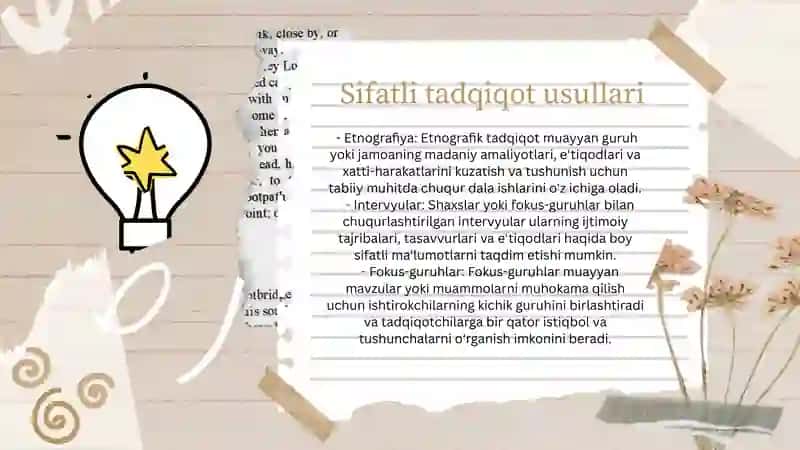 ık, close by, or
way.
ey Lo
ed ca
with
ome
her a
you
ead. h
to
ootpath
oint; c
Sifatli tadqiqot usullari
- Etnografiya: Etnografik tadqiqot muayyan guruh
yoki jamoaning madaniy amaliyotlari, e'tiqodlari va
xatti-harakatlarini kuzatish va tushunish uchun
tabiiy muhitda chuqur dala ishlarini o'z ichiga oladi.
- Intervyular: Shaxslar yoki fokus-guruhlar bilan
chuqurlashtirilgan intervyular ularning ijtimoiy
tajribalari, tasavvurlari va e'tiqodlari haqida boy
sifatli ma'lumotlarni taqdim etishi mumkin.
- Fokus-guruhlar: Fokus-guruhlar muayyan
mavzular yoki muammolarni muhokama qilish
uchun ishtirokchilarning kichik guruhini birlashtiradi
va tadqiqotchilarga bir qator istiqbol va
tushunchalarni o'rganish imkonini beradi.